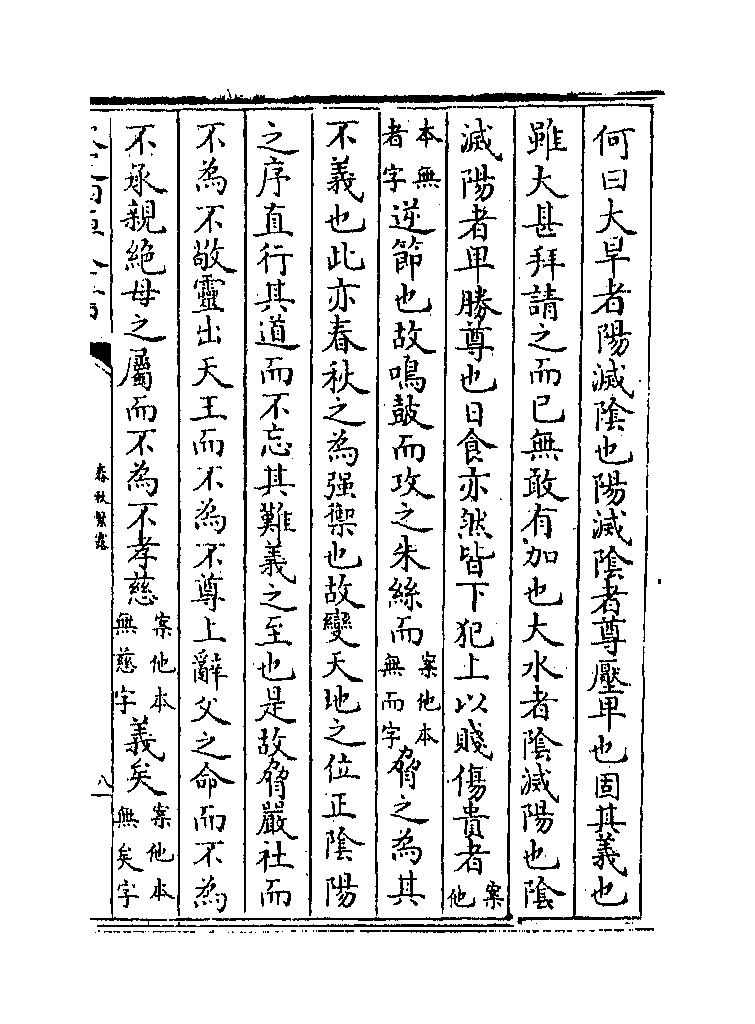 何曰大旱者陽滅隂也陽滅隂者尊壓卑也固其義也
雖大甚拜請之而已無敢有加也大水者隂滅陽也隂
滅陽者卑勝尊也日食亦然皆下犯上以賤傷貴者案他
本無者字逆節也故鳴鼓而攻之朱絲而案他本無而字脅之為其
不義也此亦春秋之為强禦也故變天地之位正隂陽
之序直行其道而不忘其難義之至也是故脅嚴社而
不為不敬靈出天王而不為不尊上辭父之命而不為
不承親絶母之屬而不為不孝慈案他本無慈字義矣案他本無矣字
春秋繁露
八